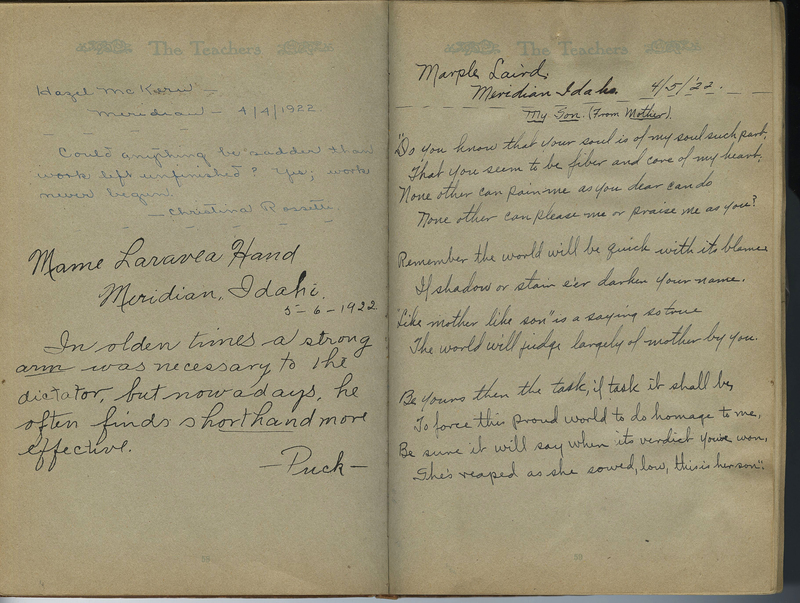 The Teachers
Hazel McKern
Meridian – 4/4/1922.
Could anything be sadder than
work left unfinished? Yes; work
never begun.
– Christina Rossetti.
Mame Laravea Hand
Meridian, Idaho.
5-6-1922.
In olden times a strong
arm was necessary to the
dictator, but nowadays, he
often finds shorthand more
effective.
– Puck –
The Teachers
Marple Laird.
Meridian Idaho. 4/5/'22.
My Son. (From Mother).
"Do you know that your soul is of my soul such part,
That you seem to be fiber and core of my heart;
None other can pain me as you dear can do
None other can please me or praise me as you?
Remember the world will be quick with its blame
If shadow or stain e'er darken your name.
"Like mother like son" is a saying so true
The world will judge largely of mother by you.
Be yours then the task, if task it shall be,
To force this proud world to do homage to me,
Be sure it will say when its verdict you've won,
She's reaped as she sowed, low, this is her son".